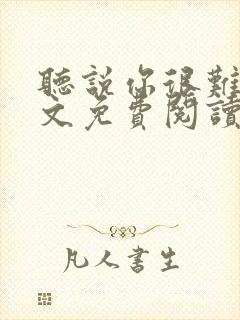 聽說你很難
文免費閱讀
凡人書生